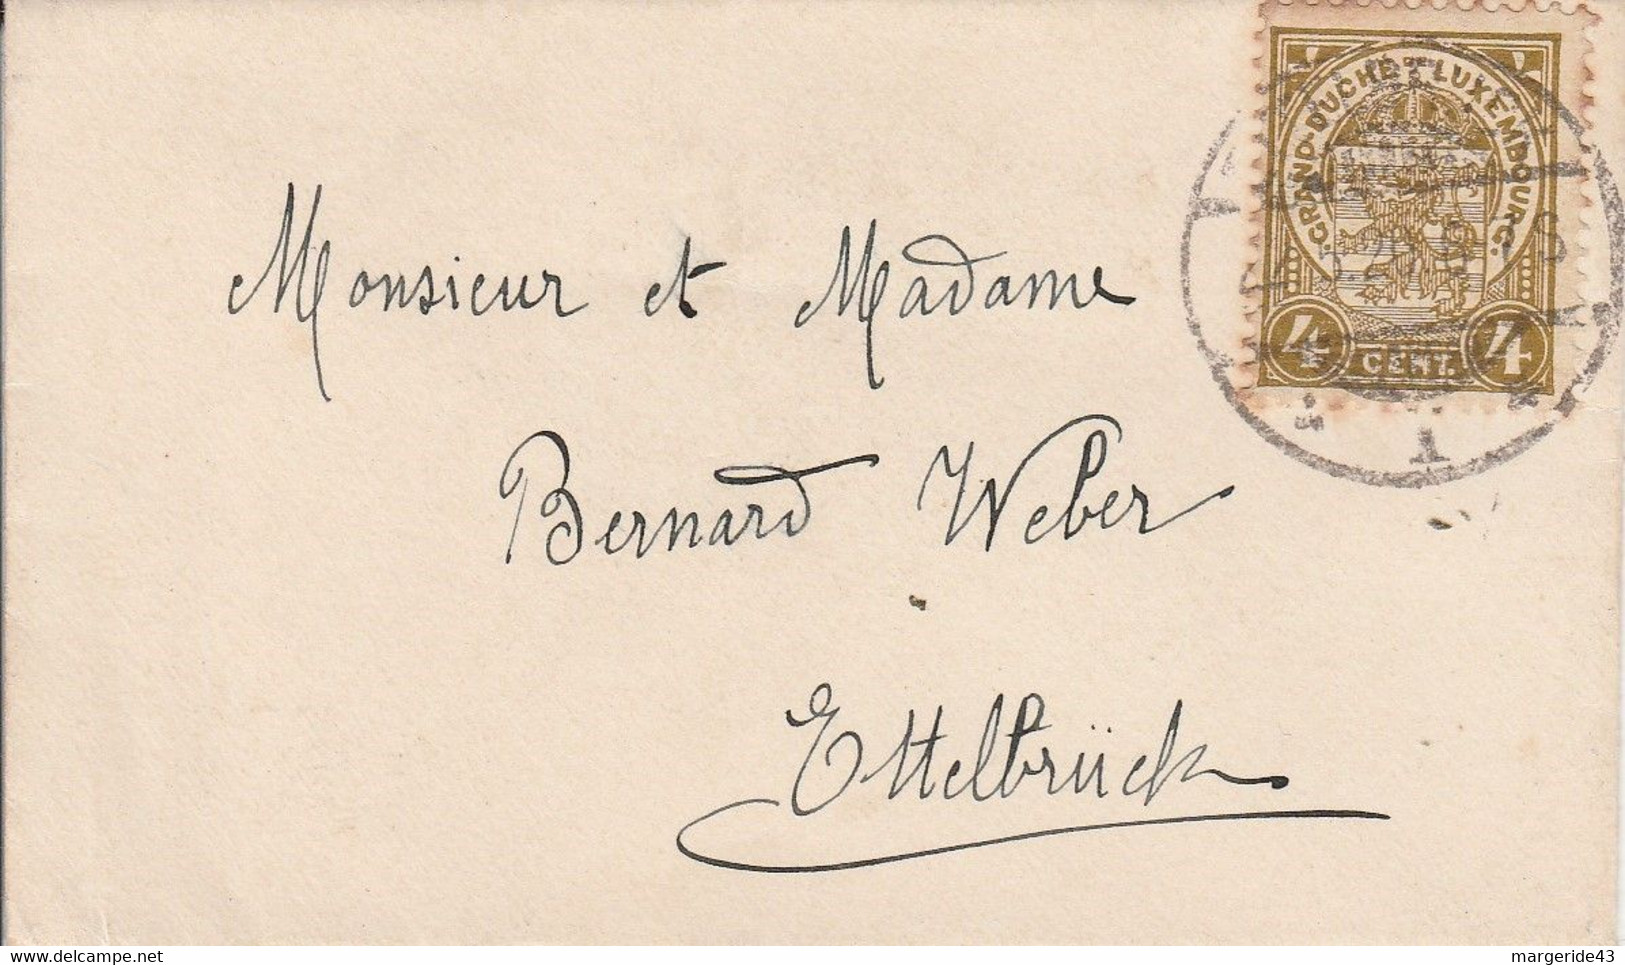 GRAND-DUCHÉ DE LUXEMBOURG.
4 CENT. 4
Monsieur et Madame
Bernard Weber
Ettelbrück
delcampe.net
margeride43